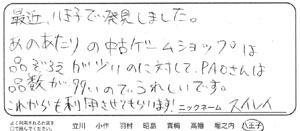 最近、八王子で発見しました。
あのあたりの中古ゲームショップは
品ぞろえが少ないのに対して、PAOさんは
品数が多いのでうれしいです。
これからも利用させてもらいます!ニックネーム スイレイ
立川 小作 羽村 昭島 青梅 高幡 堀之内 八王子